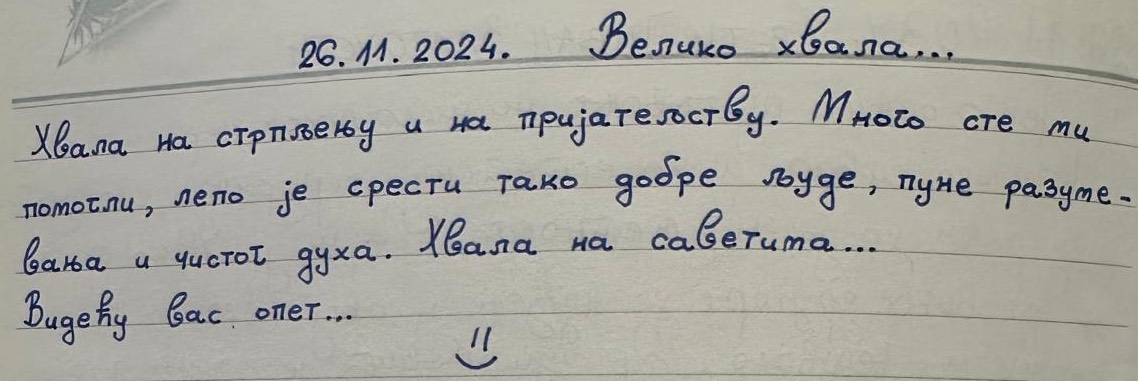 26.11.2024. Велико хвала...
Хвала на стрпљењу и на пријатељству. Много сте ми
помогли, лепо је срести тако добре људе, пуне разуме-
вања и чистог духа. Хвала на саветима...
Видећу вас опет...